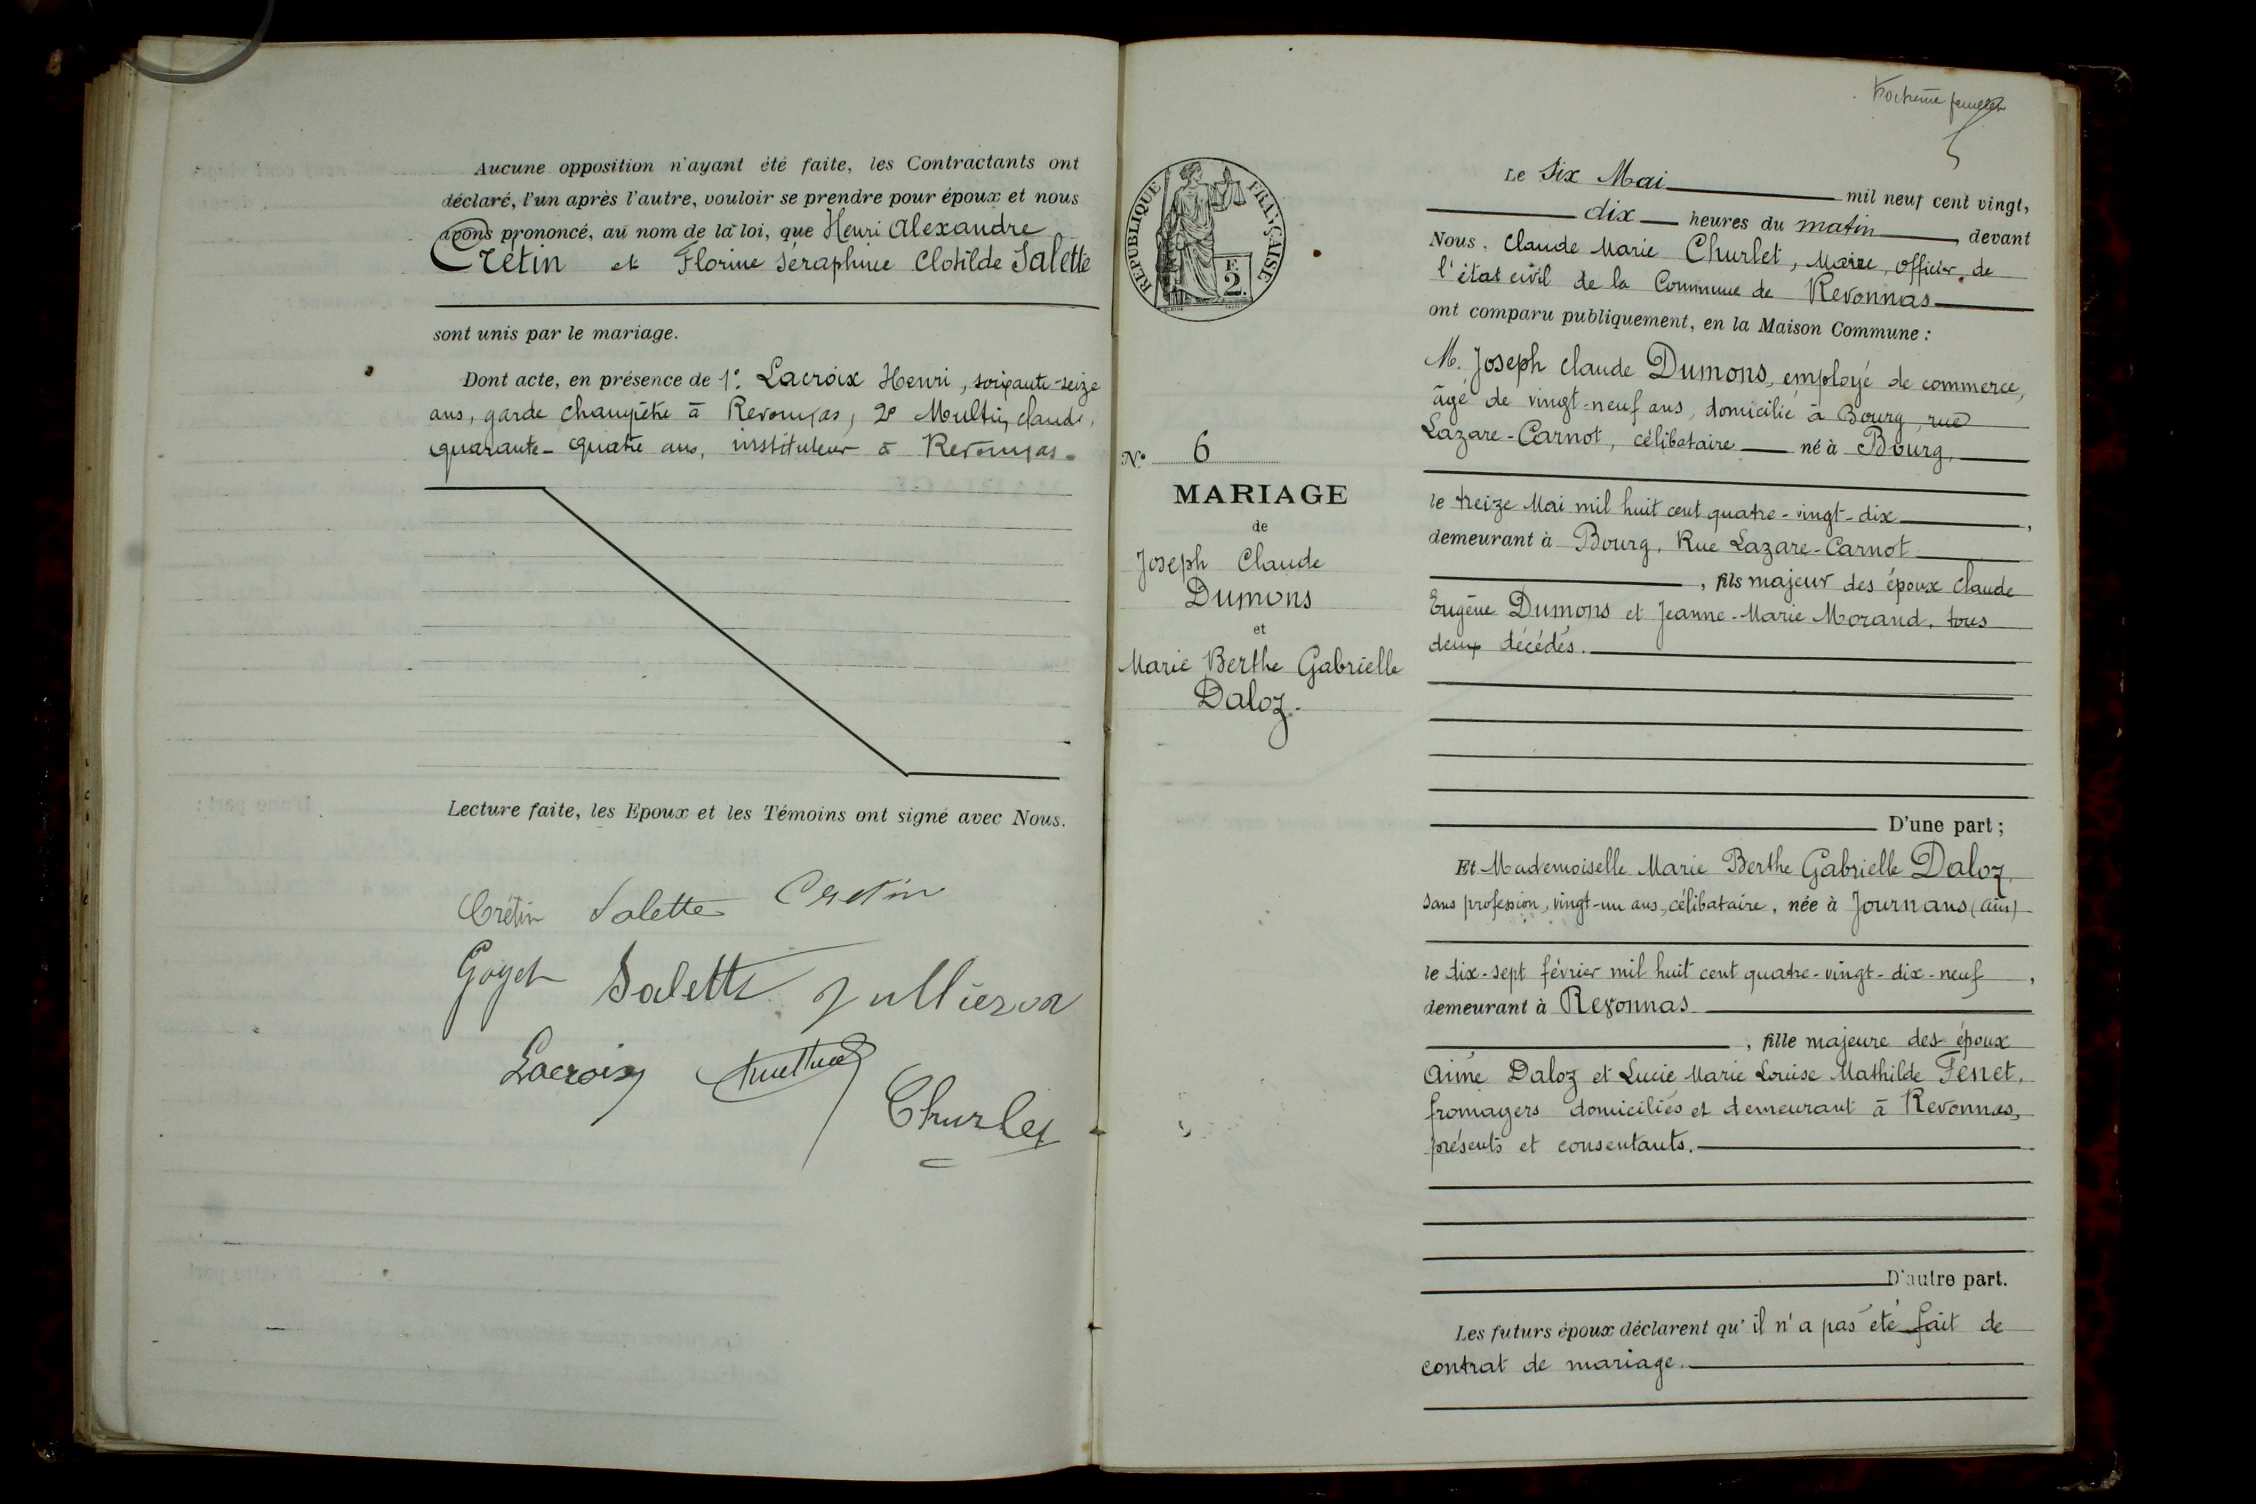 Aucune opposition n'ayant été faite, les Contractants ont
déclaré, l'un après l'autre, vouloir se prendre pour époux et nous
avons prononcé, au nom de la loi, que Henri Alexandre
Crétin et Florine Séraphine Clotilde Salette
sont unis par le mariage.
Dont acte, en présence de 1° Lacroix Henri, soixante-seize
ans, garde champêtre à Revonnas, 2° Multin, Claude,
quarante-quatre ans, instituteur à Revonnas.
Lecture faite, les Epoux et les Témoins ont signé avec Nous.
Crétin Salette Cretin
Goyet Salette Jullieron
Lacroix
Churlet
Troisième feuillet
RÉPUBLIQUE FRANÇAISE
F.
2.
N° 6
MARIAGE
de
Joseph Claude
Dumons
et
Marie Berthe Gabrielle
Daloz.
Le Six Mai mil neuf cent vingt,
dix heures du matin, devant
Nous, Claude Marie Churlet, Maire, officier de
l'état civil de la Commune de Revonnas
ont comparu publiquement, en la Maison Commune :
M. Joseph Claude Dumons, employé de commerce,
âgé de vingt-neuf ans, domicilié à Bourg, rue
Lazare-Carnot, célibataire né à Bourg,
le treize Mai mil huit cent quatre-vingt-dix,
demeurant à Bourg, Rue Lazare-Carnot
, fils majeur des époux Claude
Eugène Dumons et Jeanne-Marie Morand, tous
deux décédés.
D'une part ;
Et Mademoiselle Marie Berthe Gabrielle Daloz,
sans profession, vingt-un ans, célibataire, née à Journans (Ain)
le dix-sept février mil huit cent quatre-vingt-dix-neuf,
demeurant à Revonnas
, fille majeure des époux
Aimé Daloz et Lucie Marie Louise Mathilde Fenet,
fromagers domiciliés et demeurant à Revonnas,
présents et consentants.
D'autre part.
Les futurs époux déclarent qu'il n'a pas été fait de
contrat de mariage.